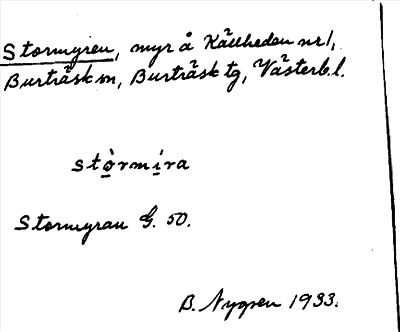 Stormyren, myr å Källheden nr 1,
Burträsk sn, Burträsk tg, Västerb. l.
stòrmira
Stormyran G. 50.
B. Nygren 1933.